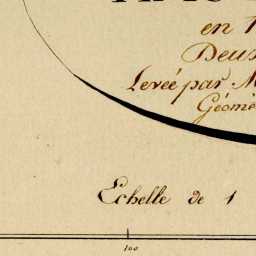 en 1
Deux
Levée par M
Géomè
Echelle de 1
100